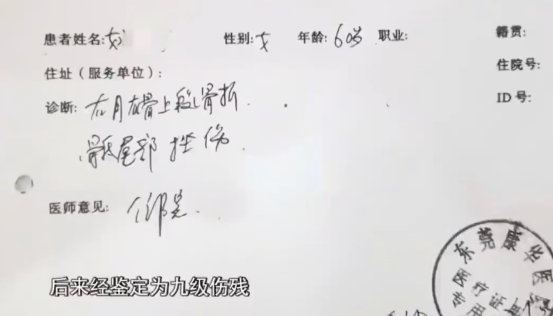 患者姓名: 性别:女 年龄:60岁 职业: 籍贯:
住址(服务单位): 住院号:
诊断:右肱骨上段骨折 ID号:
骶尾部挫伤
医师意见:
后来经鉴定为九级伤残
东莞康华医
医疗证
专用